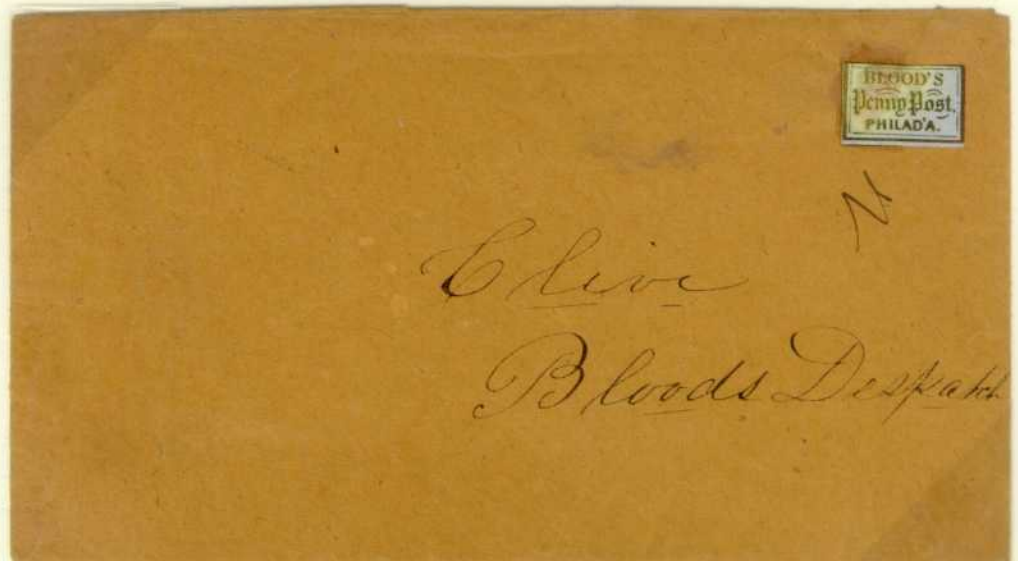 BLOOD'S
Penny Post,
PHILAD'A.
Clive
Bloods Despatch